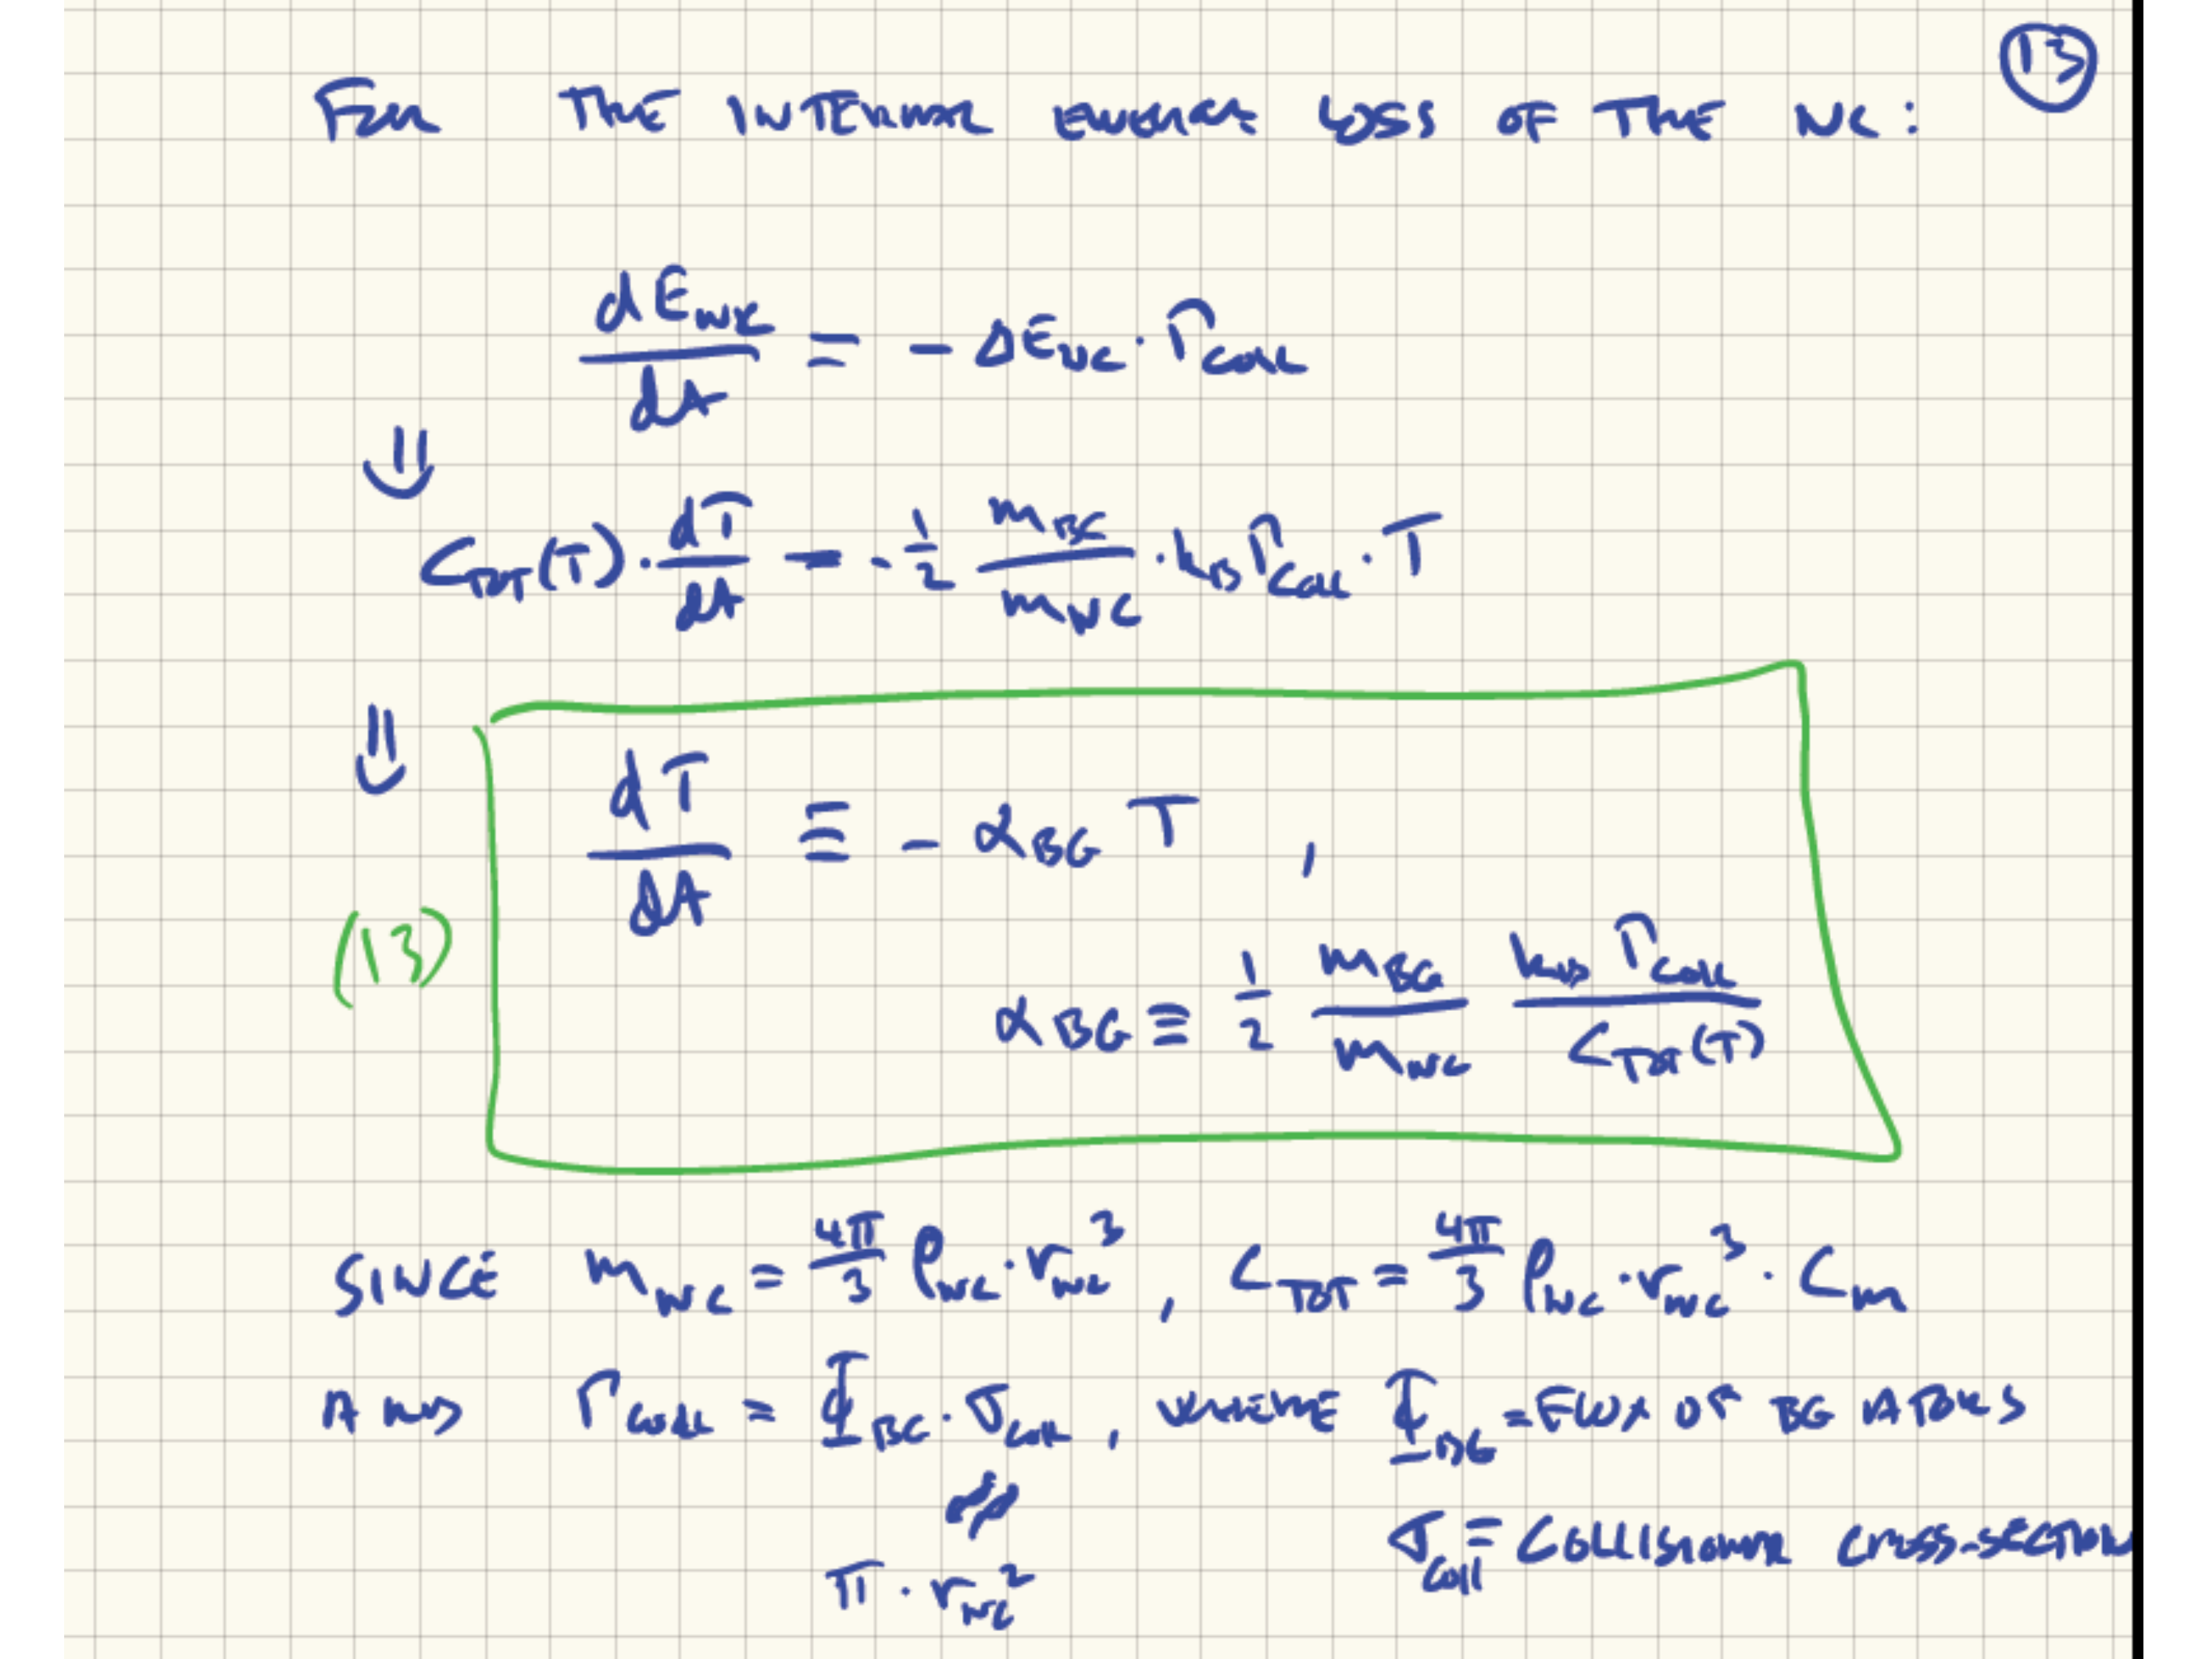 ⑬
FOR THE INTERNAL ENERGY LOSS OF THE NC:
dE_NC/dt = - ΔE_NC · Γ_COLL
⇓
C_TOT(T) · dT/dt = - 1/2 m_BG/m_NC · k_B Γ_COLL · T
⇓
dT/dt ≡ - α_BG T ,
(13)
α_BG ≡ 1/2 m_BG/m_NC k_B Γ_COLL/C_TOT(T)
SINCE m_NC = 4π/3 ρ_NC · r_NC^3 , C_TOT = 4π/3 ρ_NC · r_NC^3 · C_m
AND Γ_COLL = Φ_BG · σ_COLL , WHERE Φ_BG = FLUX OF BG ATOMS
σ_COLL = COLLISIONAL CROSS-SECTION
π · r_NC^2